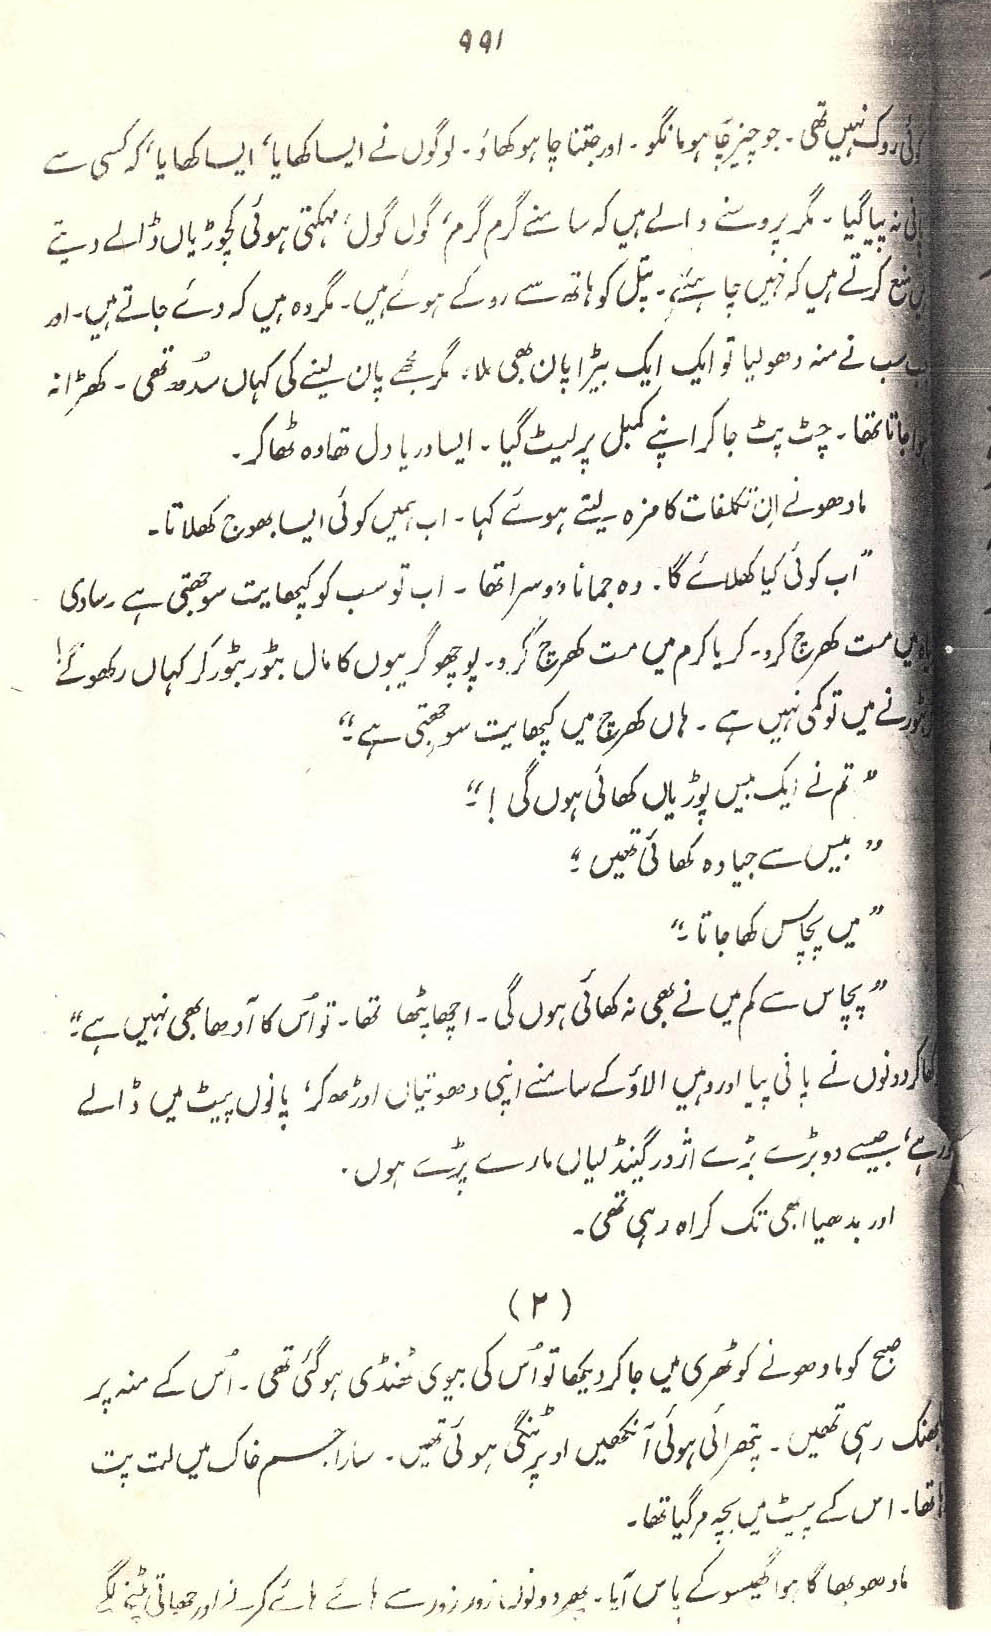 ۹۹۱
کوئی روک نہیں تھی۔ جو چیز چاہو مانگو۔ اور جتنا چاہو کھاؤ۔ لوگوں نے ایسا کھایا، ایسا کھایا، کہ کسی سے
پانی نہ پیا گیا۔ مگر پروسنے والے ہیں کہ سامنے گرم گرم، گول گول، مہکتی ہوئی کچوڑیاں ڈالے دیتے
منع کرتے ہیں کہ نہیں چاہئے۔ پتل کو ہاتھ سے روکے ہوئے ہیں۔ مگر وہ ہیں کہ دئے جاتے ہیں۔ اور
جب سب نے منہ دھو لیا تو ایک ایک بیڑا پان بھی ملا، مگر مجھے پان لینے کی کہاں سُدھ تھی۔ کھڑا نہ
ہوا جاتا تھا۔ چٹ پٹ جا کر اپنے کمبل پر لیٹ گیا۔ ایسا دریا دل تھا وہ ٹھاکر۔
مادھو نے اِن تکلفات کا مزہ لیتے ہوئے کہا۔ اب ہمیں کوئی ایسا بھوج کھلاتا۔
”اب کوئی کیا کھلائے گا۔ وہ جمانا دوسرا تھا۔ اب تو سب کو کپھایت سوجھتی ہے۔ سادی
بیاہ میں مت کھرچ کرو۔ کریا کرم میں مت کھرچ کرو۔ پوچھو گریبوں کا مال بٹور بٹور کر کہاں رکھوگے!
بٹورنے میں تو کمی نہیں ہے۔ ہاں کھرچ میں کپھایت سوجھتی ہے۔“
”تم نے ایک بیس پوڑیاں کھائی ہوں گی!۔“
”بیس سے جیادہ کھائی تھیں۔“
”میں پچاس کھا جاتا۔“
”پچاس سے کم میں نے بھی نہ کھائی ہوں گی۔ اچھا پٹھا تھا۔ تو اُس کا آدھا بھی نہیں ہے۔“
کھا کر دونوں نے پانی پیا اور وہیں الاؤ کے سامنے اپنی دھوتیاں اوڑھ کر، پانوں پیٹ میں ڈالے
سو رہے، جیسے دو بڑے بڑے اژدر گینڈلیاں مارے پڑے ہوں۔
اور بدھیا ابھی تک کراہ رہی تھی۔
(۲)
صبح کو مادھو نے کوٹھری میں جا کر دیکھا تو اُس کی بیوی ٹھنڈی ہو گئی تھی۔ اُس کے منہ پر
بھنک رہی تھیں۔ پتھرائی ہوئی آنکھیں اوپر ٹنگی ہوئی تھیں۔ سارا جسم خاک میں لت پت
تھا۔ اس کے پیٹ میں بچہ مر گیا تھا۔
مادھو بھاگا ہوا گھیسو کے پاس آیا۔ پھر دونوں زور زور سے ہائے ہائے کرنے اور چھاتی پیٹنے لگے